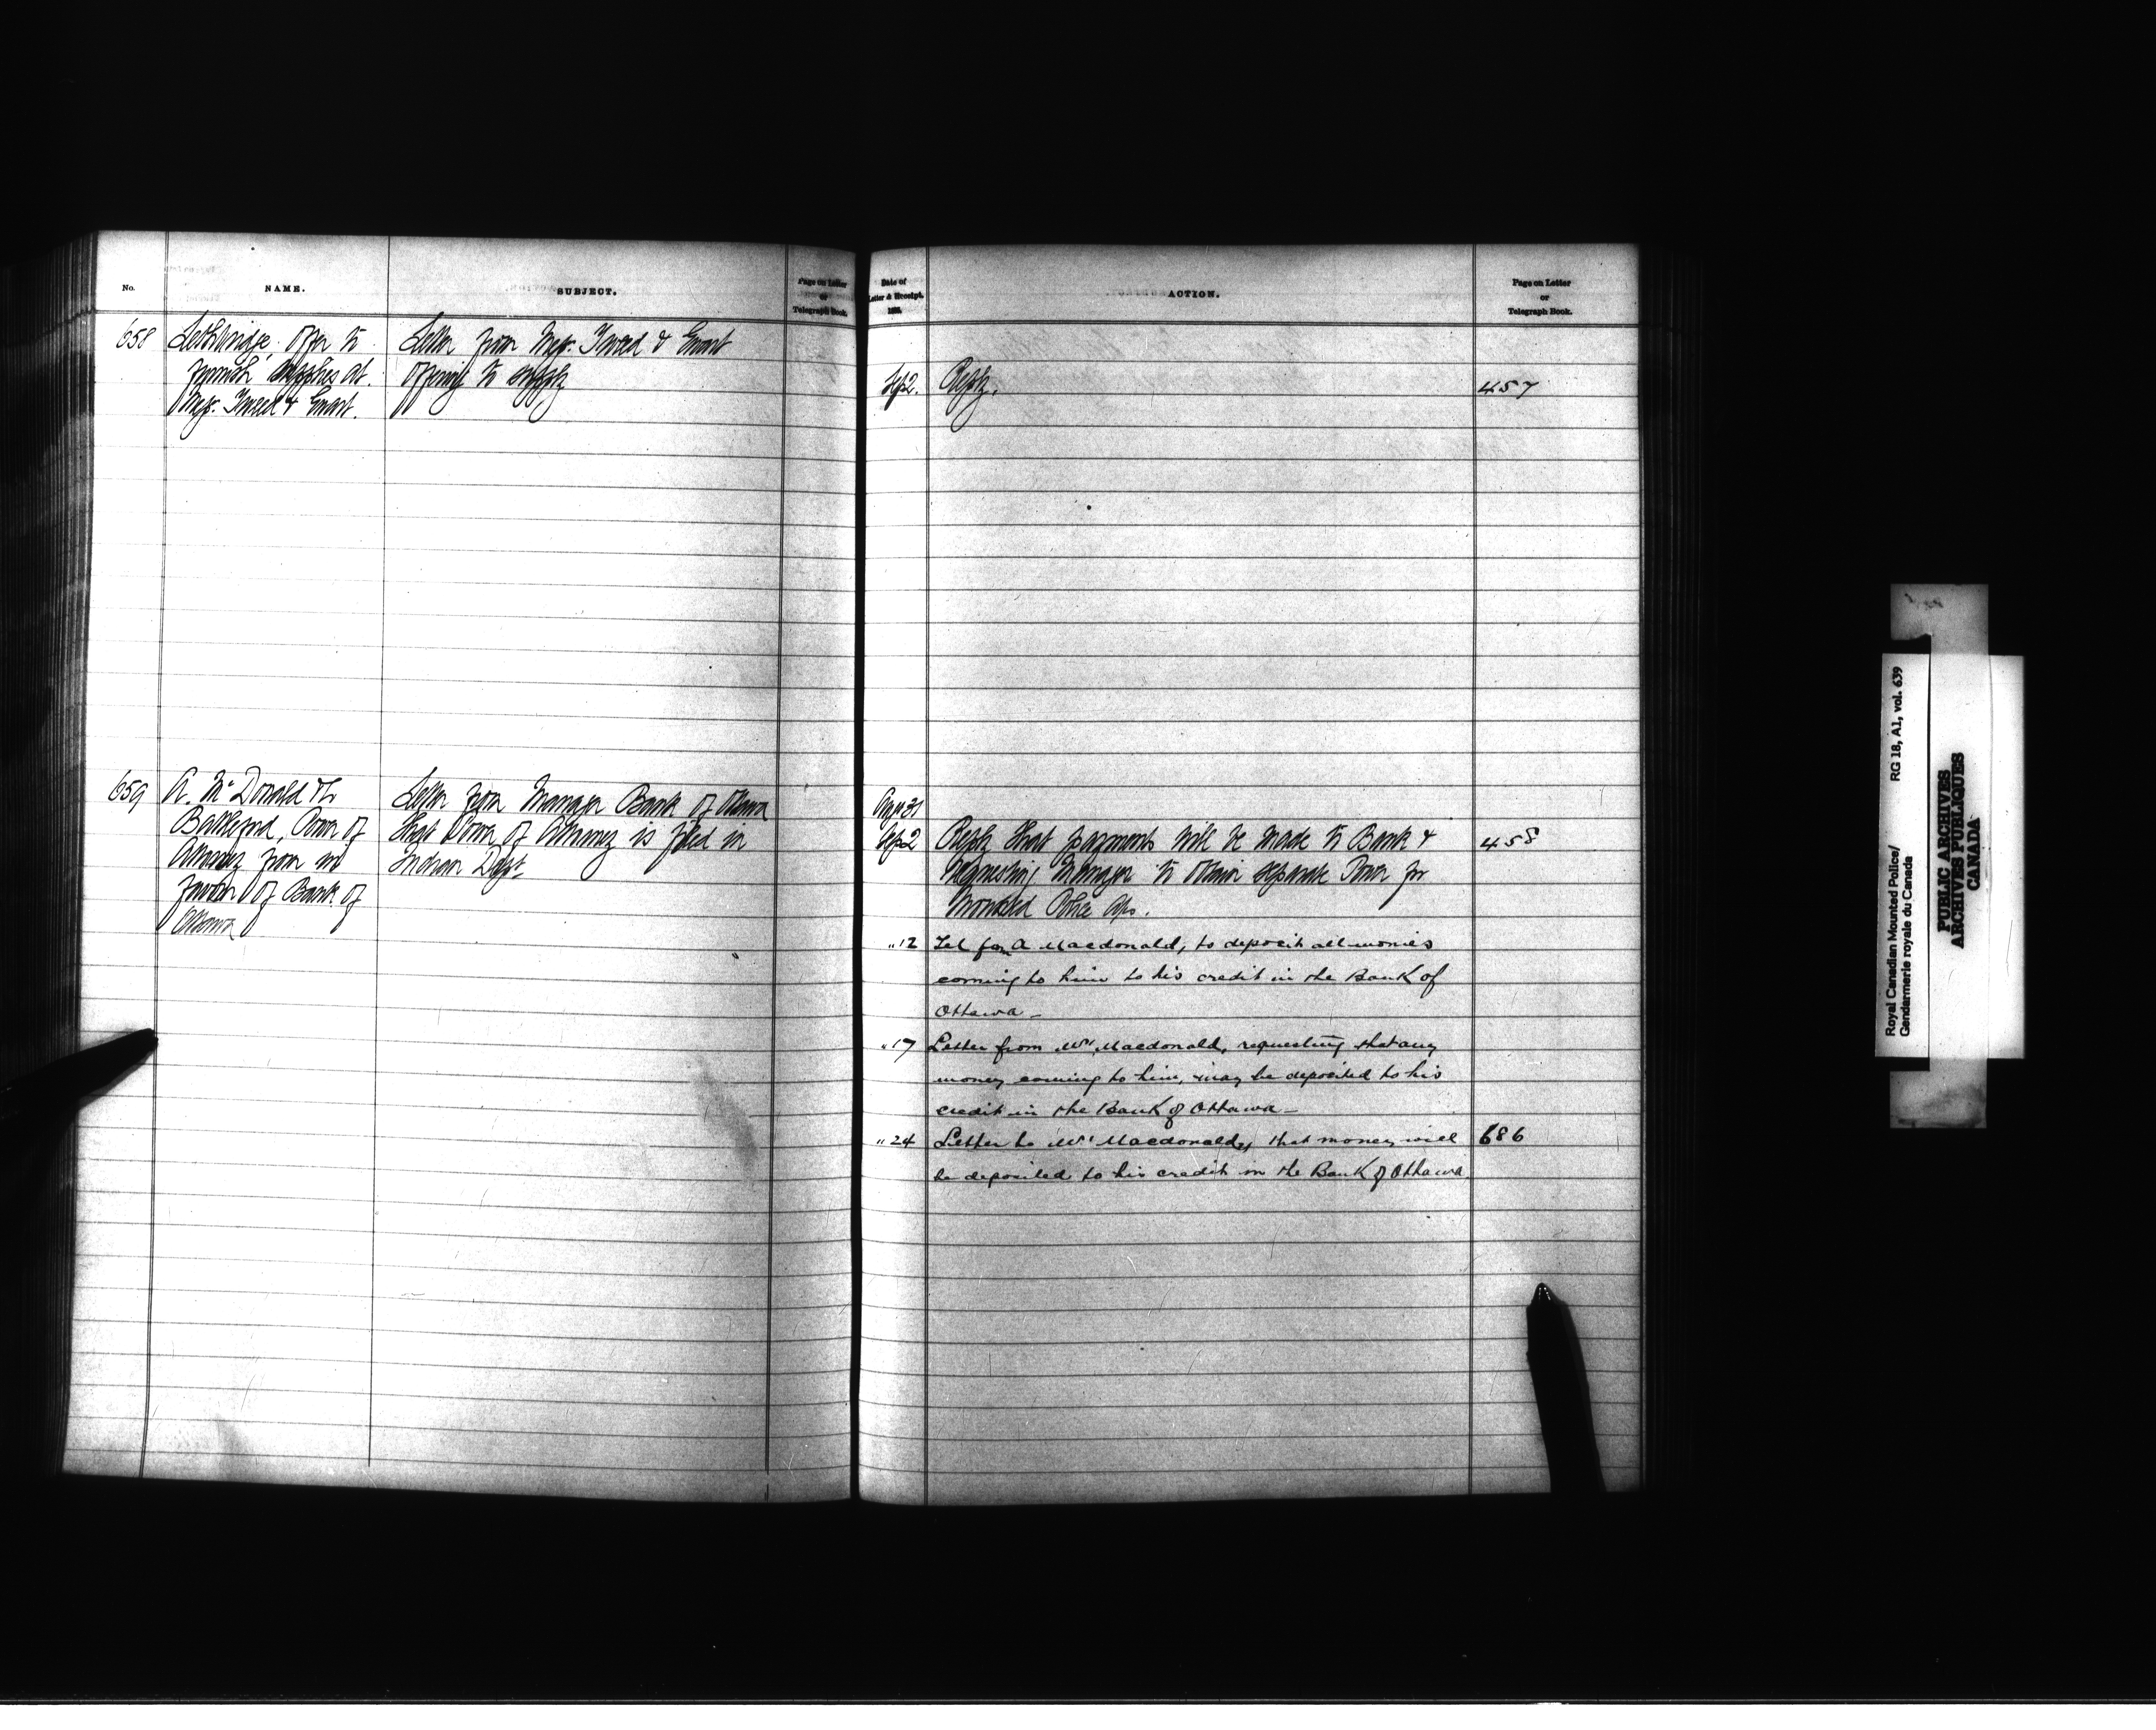 No.
NAME.
SUBJECT.
Page on Letter
or
Telegraph Book.
658
Lethbridge. Offer to
furnish supplies at.
Mess. Tweed & Ewart.
Letter from Mess. Tweed & Ewart
offering to supply
659
A. McDonald
Battleford, Power of
Attorney from in
favour of Bank of
Ottawa
Letter from Manager Bank of Ottawa
that Power of Attorney is filed in
Indian Dept
Date of
Letter & Receipt.
188
ACTION.
Page on Letter
or
Telegraph Book.
Sep 2. Reply. 457
Aug 31
Sep 2 Reply that payments will be made to Bank & 458
requesting Manager to obtain separate Power for
Mounted Police a/cs.
" 12 Tel from A Macdonald, to deposit all monies
coming to him to his credit in the Bank of
Ottawa_
" 17 Letter from Mr Macdonald, requesting that any
money coming to him, may be deposited to his
credit in the Bank of Ottawa_
" 24 Letter to Mr Macdonald, that money will 686
be deposited to his credit in the Bank of Ottawa.
Royal Canadian Mounted Police/
Gendarmerie royale du Canada
RG 18, A1, vol. 639
PUBLIC ARCHIVES
ARCHIVES PUBLIQUES
CANADA